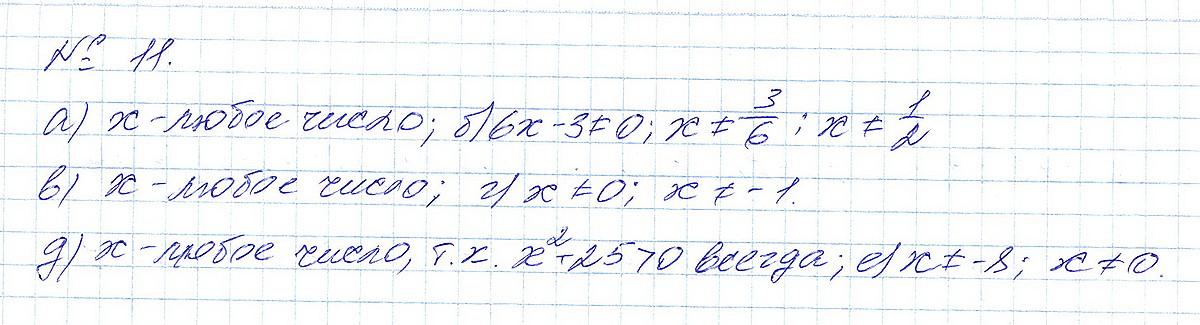 № 11.
а) x - любое число; б) 6x - 3 ≠ 0; x ≠ 3/6; x ≠ 1/2
в) x - любое число; г) x ≠ 0; x ≠ -1.
д) x - любое число, т.к. x² + 25 > 0 всегда; е) x ≠ -8; x ≠ 0.